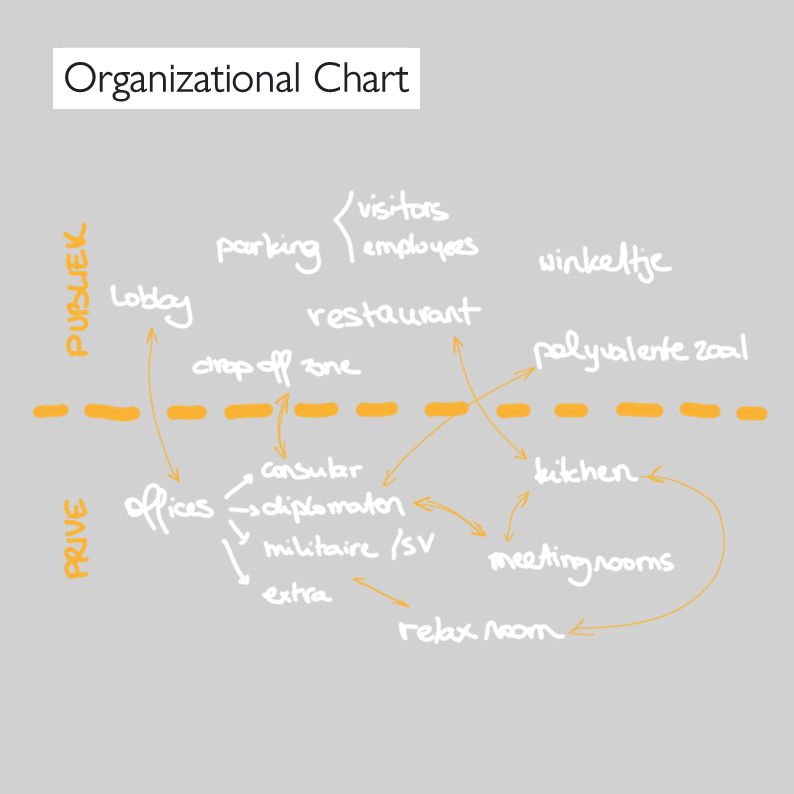 Organizational Chart
PUBLIEK
parking
visitors
employees
winkeltje
lobby
restaurant
drop off zone
polyvalente zaal
PRIVE
offices
consular
diplomaten
militaire / SV
extra
kitchen
meetingrooms
relax room